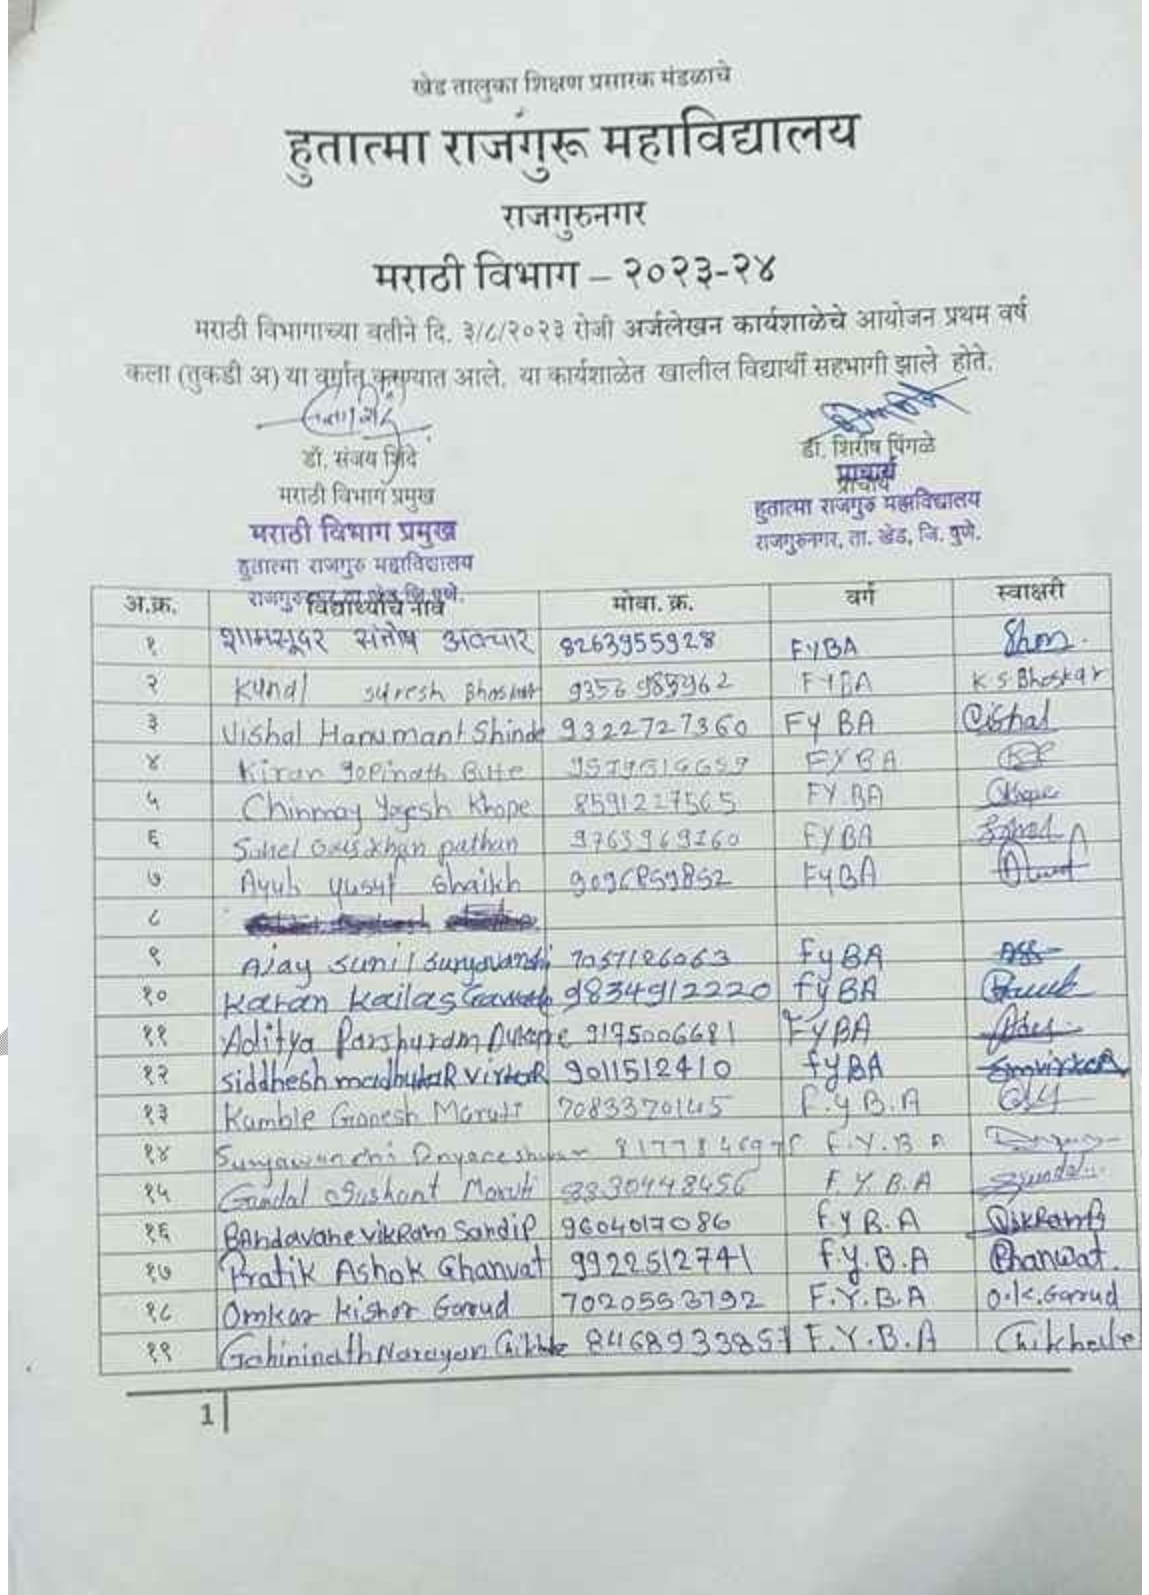 खेड तालुका शिक्षण प्रसारक मंडळाचे
हुतात्मा राजगुरू महाविद्यालय
राजगुरुनगर
मराठी विभाग – २०२३-२४
मराठी विभागाच्या वतीने दि. ३/८/२०२३ रोजी अर्जलेखन कार्यशाळेचे आयोजन प्रथम वर्ष
कला (तुकडी अ) या वर्गात करण्यात आले. या कार्यशाळेत खालील विद्यार्थी सहभागी झाले होते.
डॉ. संजय शिंदे डॉ. शिरीष पिंगळे
मराठी विभाग प्रमुख प्राचार्य
मराठी विभाग प्रमुख प्राचार्य
हुतात्मा राजगुरु महाविद्यालय हुतात्मा राजगुरु महाविद्यालय
राजगुरुनगर, ता. खेड, जि. पुणे.
अ.क्र. विद्यार्थ्याचे नाव मोबा. क्र. वर्ग स्वाक्षरी
१ शामसूदर संतोष अवचार 8263955928 FYBA Sham.
२ Kunal suresh Bhoskar FYBA K S Bhoskar
३ Vishal Hanumant Shinde 9322727360 FY BA Vishal
४ Kiran gopinath FYBA
५ Chinmay Yogesh Khope 8591227565 FY.BA
६ Sohel khan pathan 9763969260 FYBA
७ Ayub yusuf Shaikh FyBA
८
९ Ajay sunil suryavanshi 7057126063 FyBA
१० Karan kailas 9834912220 fyBA
११ Aditya Parshuram 9175006681 FYBA
१२ Siddhesh madhukaR viRkaR 9011512410 fyBA
१३ Kamble Ganesh Maruti 7083370145 F.y B.A
१४ Suryawanshi Dnyaneshwar F.Y.B A
१५ Gundal Sushant Maruti 8830448456 F.Y.B.A
१६ BAndavane vikRam Sandip 9604017086 F.Y B.A VikRam
१७ Pratik Ashok Ghanvat 9922512741 F.y.B.A Phanwat.
१८ Omkar Kishor Garud 7020553792 F.Y.B.A O.K.Garud
१९ Gahininath Narayan Chikhale 8468933857 F.Y.B.A Chikhale
1|